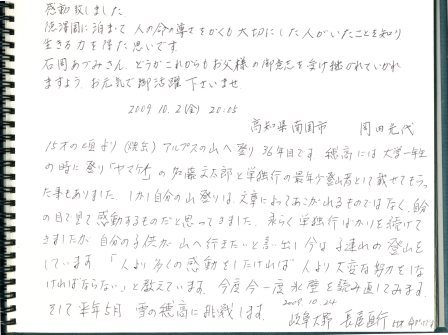 感動致しました
徳澤園に泊まって 人の命の尊さをかくも大切にした人がいたことを知り
生きる力を得た思いです
石岡あづみさん、どうかこれからもお父様の御意志を受け継がれていかれ
ますよう お元気で御活躍下さいませ
2009 10.2(金) 20:05
高知県南国市 岡田
15才の頃より(独立)アルプスの山へ登り36年目です 穂高には大学一年生
の時に登り「ヤマケイ」の 加藤文太郎と単独行の最年少登山者として載せてもらっ
た事もありました。しかし自分の山登りは、文章によってあこがれるものではなく、自分
の目で見て感動するものだと思ってきました。永らく単独行ばかりを続けて
きましたが 自分の子供が山へ行きたいと言い出し今は子連れの登山を
しています 「人より多くの感動をしたければ 人より大変な努力をしな
ければならない」と教えています。今度今一度氷壁を読み直してみます
そして来年5月 雪の穂高に挑戦します 2009.10.24
岐阜大野